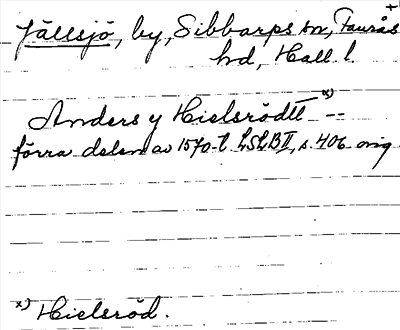 Jällsjö, by, Sibbarps sn, Faurås
hd, Hall. l.
Anders y Hielsrödt x) --
förra delen av 1570-t. LSLB II, s. 406 orig
x) Hielsröd.